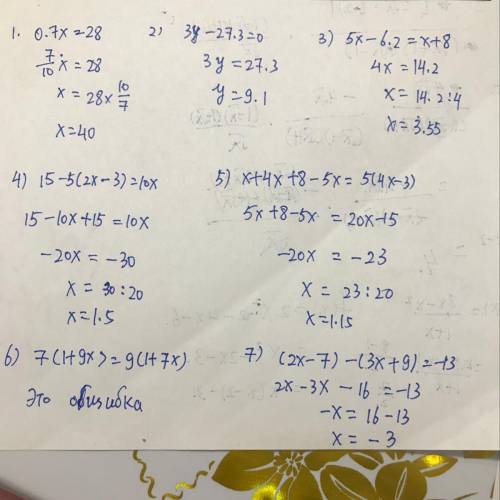 1. 0.7x = 28
7/10 x = 28
x = 28 x 10/7
x = 40
2) 3y - 27.3 = 0
3y = 27.3
y = 9.1
3) 5x - 6.2 = x + 8
4x = 14.2
x = 14.2 : 4
x = 3.55
4) 15 - 5(2x - 3) = 10x
15 - 10x + 15 = 10x
-20x = -30
x = 30 : 20
x = 1.5
5) x + 4x + 8 - 5x = 5(4x - 3)
5x + 8 - 5x = 20x - 15
-20x = -23
x = 23 : 20
x = 1.15
6) 7(1 + 9x) = 9(1 + 7x)
Это
7) (2x - 7) - (3x + 9) = -13
2x - 3x - 16 = -13
-x = 16 - 13
x = -3